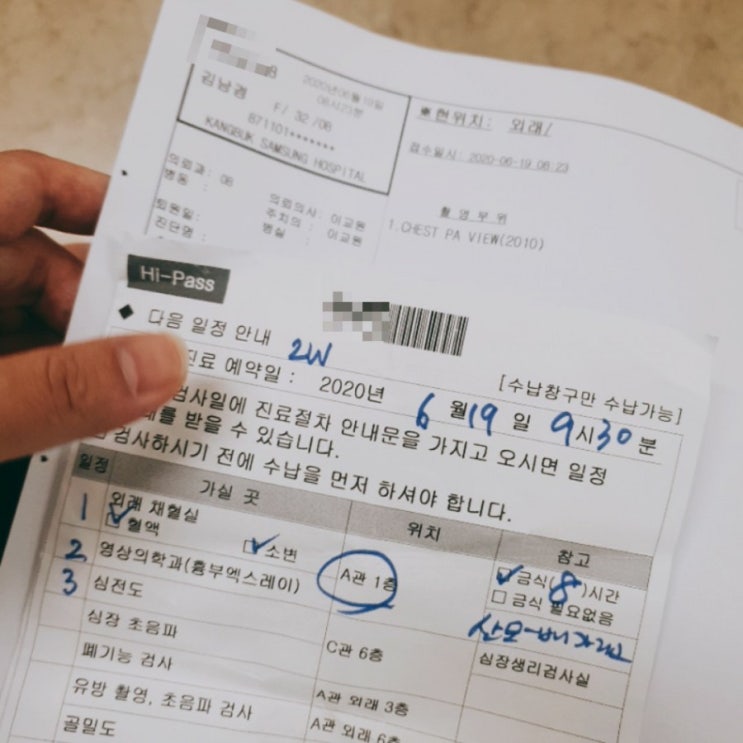 8
김남경
2020년06월19일
06시23분
F/ 32 /06
871101*******
KANGBUK SAMSUNG HOSPITAL
※현위치: 외래/
접수일시: 2020-06-19 06:23
의뢰과: 06
병동 :
의뢰의사: 이교원
퇴원일:
주치의 : 이교원
진단명 :
병실 :
촬영부위
1.CHEST PA VIEW(2010)
Hi-Pass
◆ 다음 일정 안내
2W
[수납창구만 수납가능]
진료 예약일 : 2020년 6 월 19 일 9 시 30 분
검사일에 진료절차 안내문을 가지고 오시면 일정
를 받을 수 있습니다.
검사하시기 전에 수납을 먼저 하셔야 합니다.
일정 가실 곳 위치 참고
1 외래 채혈실
☑ 혈액 ☑ 소변
A관 1층
☑ 금식( 8 )시간
□ 금식 필요없음
2 영상의학과(흉부엑스레이)
3 심전도
심장 초음파 C관 6층 심장생리검사실
폐기능 검사
유방 촬영, 초음파 검사 A관 외래 3층
골밀도 A관 외래 6층